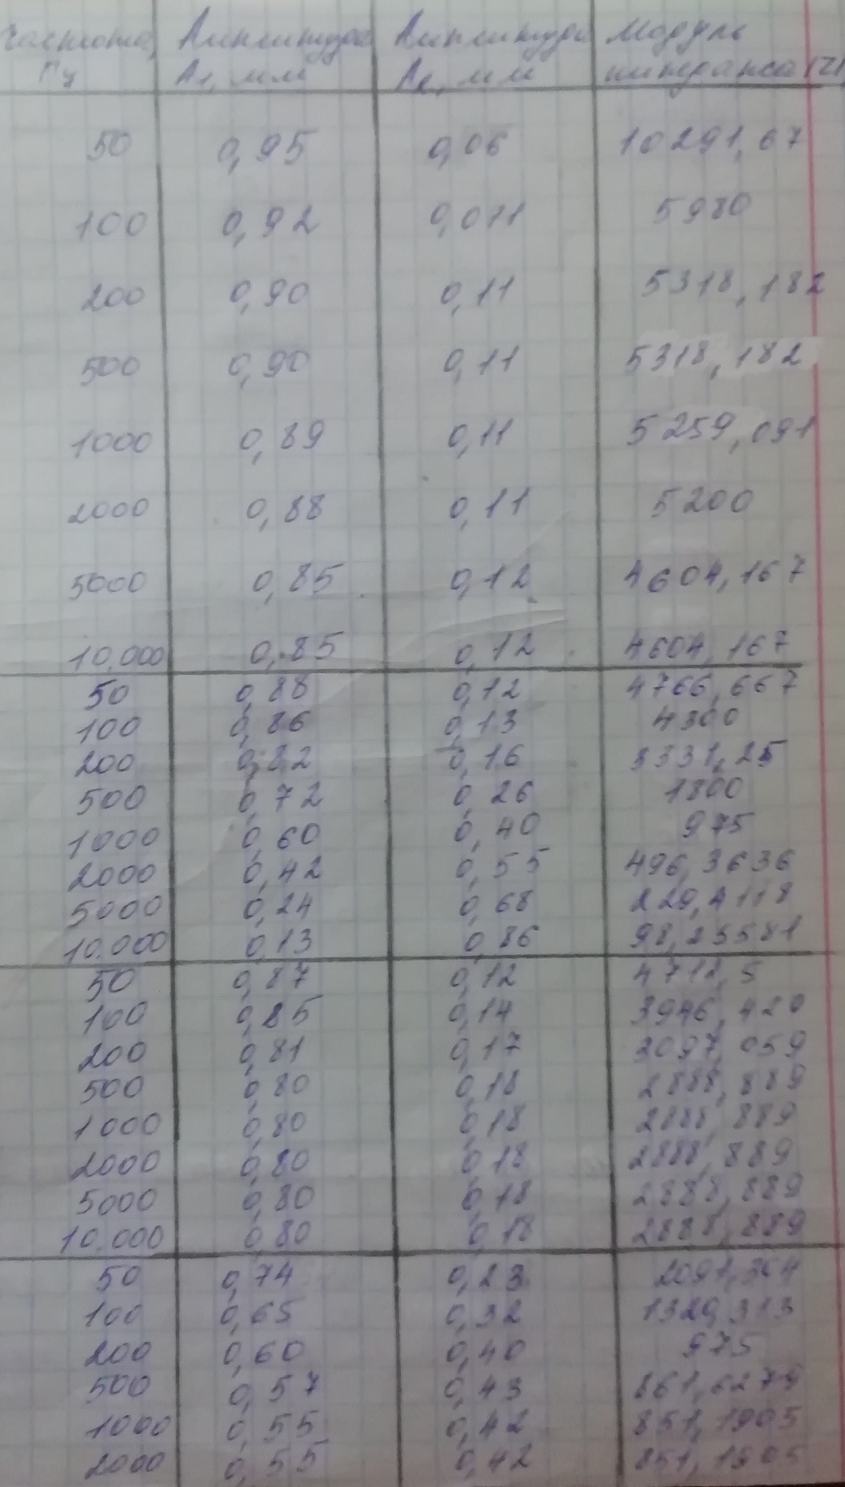 Частота, Амплитуда Амплитуда Модуль
Гц А1, мм А2, мм импеданса |Z|
50 0,95 0,06 10291,67
100 0,92 0,011 5980
200 0,90 0,11 5318,182
500 0,90 0,11 5318,182
1000 0,89 0,11 5259,091
2000 0,88 0,11 5200
5000 0,85 0,12 4604,167
10.000 0,85 0,12 4604,167
50 0,88 0,12 4766,667
100 0,86 0,13 4300
200 0,82 0,16 3331,25
500 0,72 0,26 1800
1000 0,60 0,40 975
2000 0,42 0,55 496,3636
5000 0,24 0,68 229,4118
10.000 0,13 0,86 98,25581
50 0,87 0,12 4712,5
100 0,85 0,14 3946,429
200 0,81 0,17 3097,059
500 0,80 0,18 2888,889
1000 0,80 0,18 2888,889
2000 0,80 0,18 2888,889
5000 0,80 0,18 2888,889
10.000 0,80 0,18 2888,889
50 0,74 0,23 2091,304
100 0,65 0,32 1320,313
200 0,60 0,40 975
500 0,57 0,43 861,6279
1000 0,55 0,42 851,1905
2000 0,55 0,42 851,1905